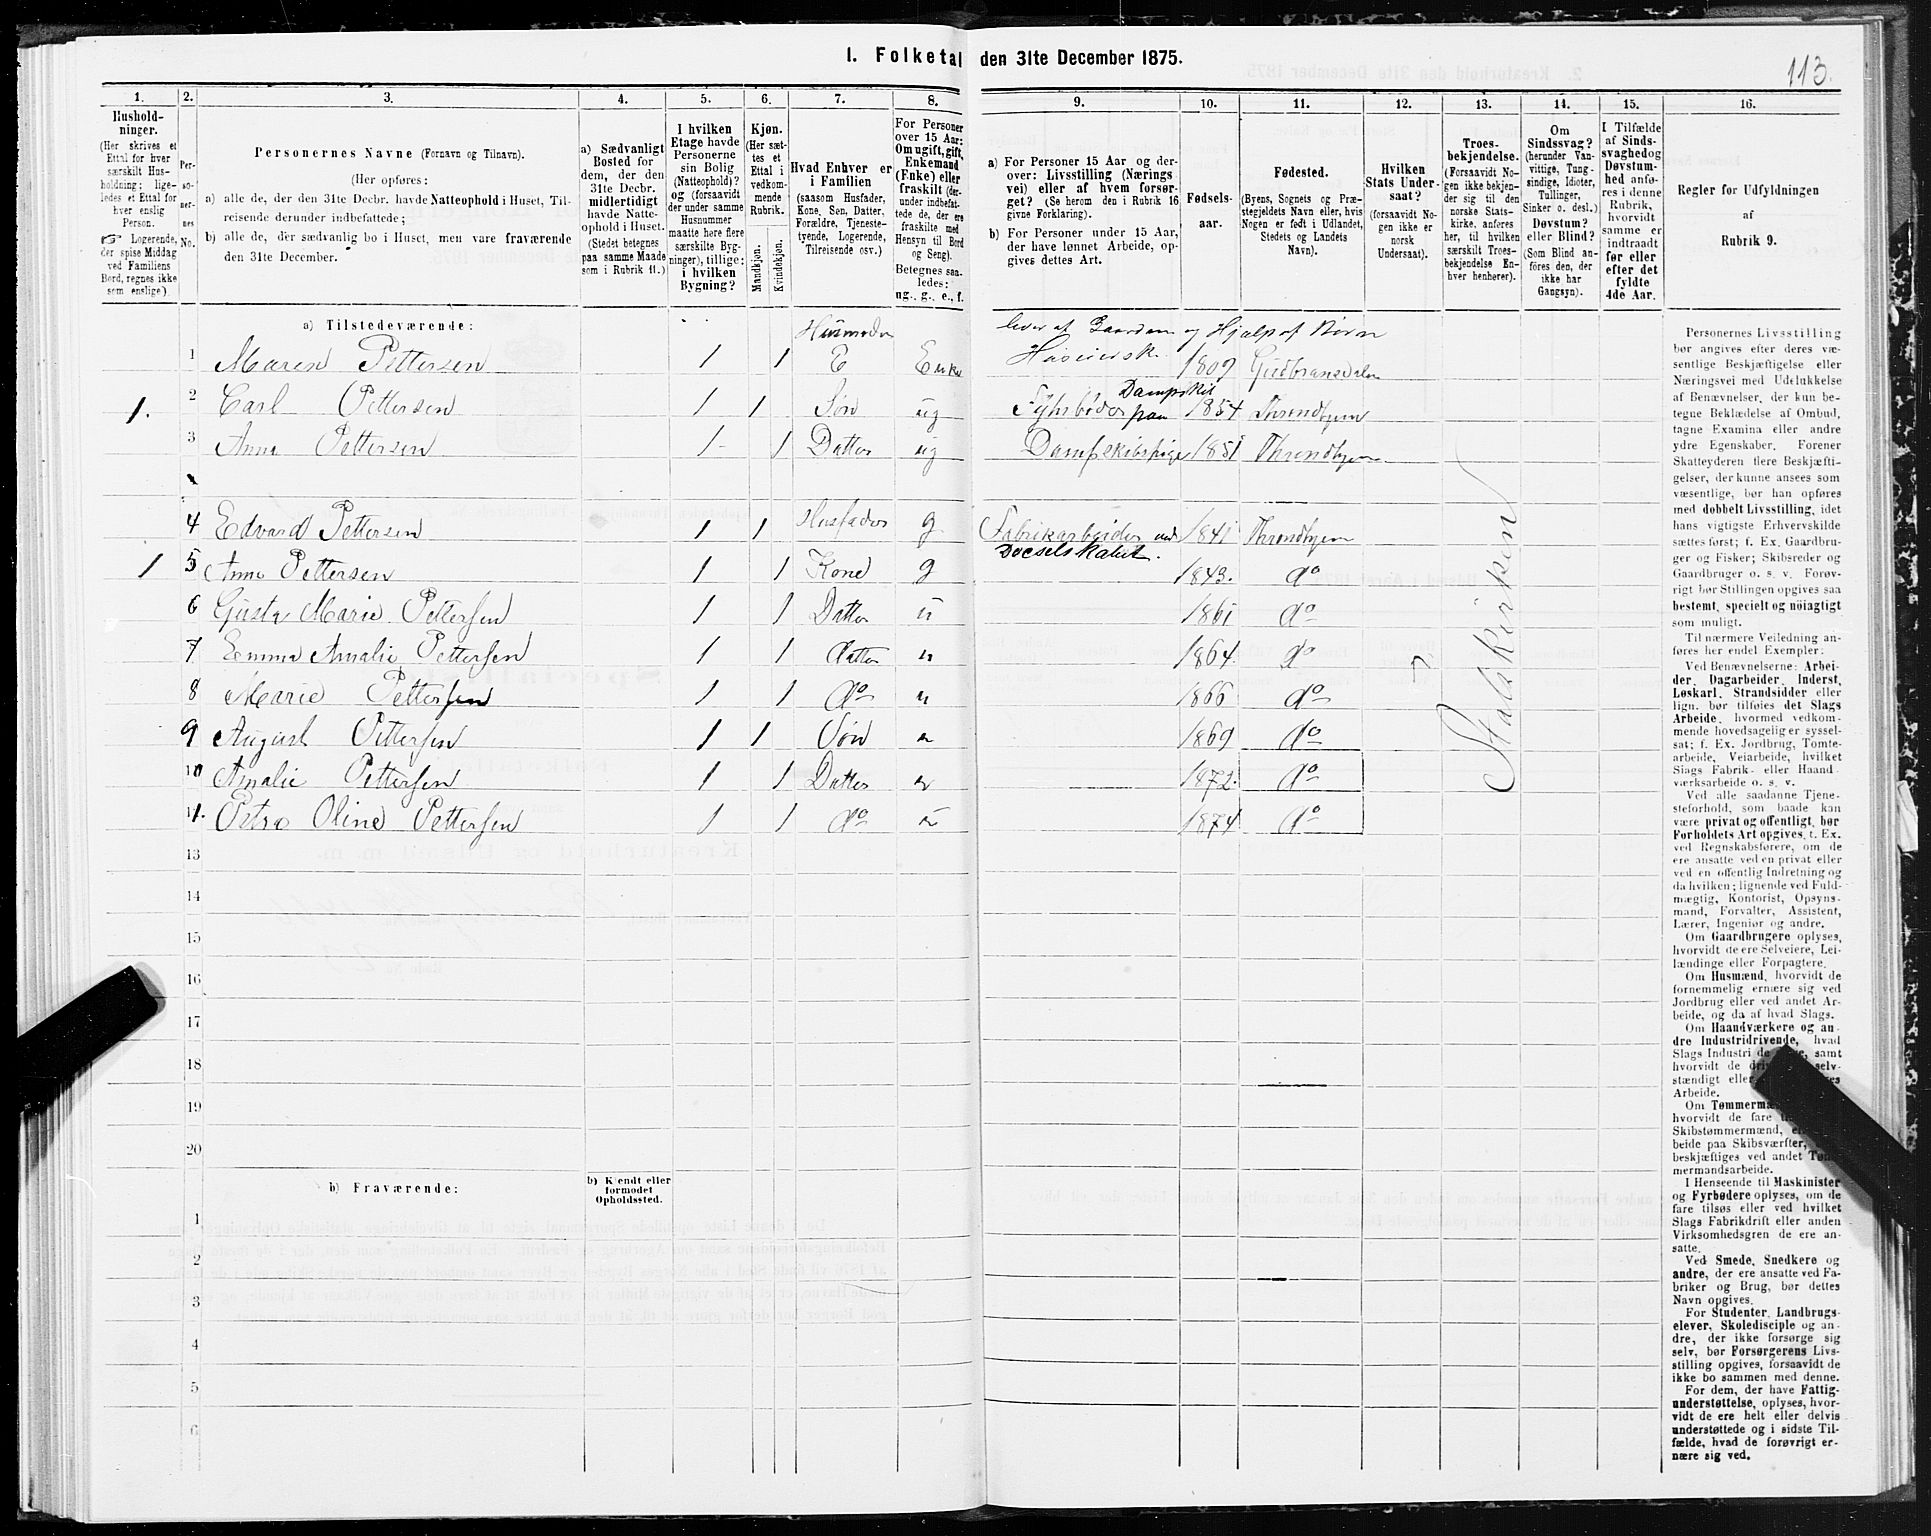 1. Folketal den 31te December 1875.
113.
1. 2. 3. 4. 5. 6. 7. 8. 9. 10. 11. 12. 13. 14. 15. 16.
Hushold-
ninger.
(Her skrives et
Ettal for hver
særskilt Hus-
holdning; lige-
ledes et Ettal for
hver enslig
Person.
☞ Logerende,
der spise Middag
ved Familiens
Bord, regnes ikke
som enslige).
Per-
so-
ner-
nes
No.
Personernes Navne (Fornavn og Tilnavn).
(Her opføres:
a) alle de, der den 31te Decbr. havde Natteophold i Huset, Til-
reisende derunder indbefattede;
b) alle de, der sædvanlig bo i Huset, men vare fraværende
den 31te December.
a) Sædvanligt
Bosted for
dem, der den
31te Decbr.
midlertidigt
havde Natte-
ophold i Huset.
(Stedet betegnes
paa samme Maade
som i Rubrik 11.)
I hvilken
Etage havde
Personerne
sin Bolig
(Natteophold)?
og (forsaavidt
der under samme
Husnummer
maatte høre flere
særskilte Byg-
ninger), tillige:
i hvilken
Bygning?
Kjøn.
(Her sæt-
tes et
Ettal i
vedkom-
mende
Rubrik.
Mandkjøn.
Kvindekjøn.
Hvad Enhver er
i Familien
(saasom Husfader,
Kone, Søn, Datter,
Forældre, Tjeneste-
tyende, Logerende,
Tilreisende osv.)
For Personer
over 15 Aar:
Om ugift, gift,
Enkemand
(Enke) eller
fraskilt (der-
under indbefat-
tede de, der ere
fraskilte med
Hensyn til Bord
og Seng).
Betegnes saa-
ledes:
ug., g., e., f.
a) For Personer 15 Aar og der-
over: Livsstilling (Nærings
vei) eller af hvem forsør-
get? (Se herom den i Rubrik 16
givne Forklaring).
b) For Personer under 15 Aar,
der have lønnet Arbeide, op-
gives dettes Art.
Fødsels-
aar.
Fødested.
(Byens, Sognets og Præ-
stegjeldets Navn eller, hvis
Nogen er født i Udlandet,
Stedets og Landets
Navn).
Hvilken
Stats Under-
saat?
(forsaavidt No-
gen ikke er
norsk
Undersaat).
Troes-
bekjendelse.
(Forsaavidt No-
gen ikke bekjen-
der sig til den
norske Stats-
kirke, anføres
her, til hvilken
særskilt Troes-
bekjendelse En-
hver henhører).
Om
Sindssvag?
(herunder Van-
vittige, Tung-
sindige, Idioter,
Tullinger,
Sinker o. desl.)
Døvstum?
eller Blind?
(Som Blind an-
føres den, der
ikke har
Gangsyn).
I Tilfælde
af Sinds-
svaghed og
Døvstum-
hed anfø-
res i denne
Rubrik,
hvorvidt
samme er
indtraadt
før eller
efter det
fyldte
4de Aar.
Regler for Udfyldningen
af
Rubrik 9.
a) Tilstedeværende:
Husmoder lever af Gaarden og Hjælp af Børn
1 Maren Pettersen 1 1 E Enke 1809 Gudbransdalen
1. 2 Carl Pettersen 1 1 Søn ug Fyhrbøder paa Dampskib 1854 Throndhjem
3 Anna Pettersen 1 1 Datter ug Dampskibspige 1851 Throndhjem
4 Edvard Pettersen 1 1 Husfader g Fabrikarbeider ved 1841 Throndhjem
1 5 Anne Pettersen 1 1 Kone g 1843. do
6 Gusta Marie Pettersen 1 1 Datter 1861 do
7 Emma Amalie Pettersen 1 1 datter 1864. do
8 Marie Pettersen 1 1 do 1866 do
9 August Pettersen 1 1 Søn 1869 do
10 Amalie Pettersen 1 1 Datter 1872. do
11. Petra Oline Pettersen 1 1 do 1874 do
Statskirken
13
14
15
16
17
18
19
20
b) Fraværende:
b) Kjendt eller
formodet
Opholdssted.
1
2
3
4
5
6
Personernes Livsstilling
bør angives efter deres væ-
sentlige Beskjæftigelse eller
Næringsvei med Udelukkelse
af Benævnelser, der kun be-
tegne Beklædelse af Ombud,
tagne Examina eller andre
ydre Egenskaber. Forener
Skatteyderen flere Beskjæfti-
gelser, der kunne ansees som
væsentlige, bør han opføres
med dobbelt Livsstilling, idet
hans vigtigste Erhvervskilde
sættes først; f. Ex. Gaardbru-
ger og Fisker; Skibsreder og
Gaardbruger o. s. v. Forøv-
rigt bør Stillingen opgives saa
bestemt, specielt og nöiagtigt
som muligt.
Til nærmere Veiledning an-
føres her endel Exempler:
Ved Benævnelserne: Arbei-
der, Dagarbeider, Inderst,
Løskarl, Strandsidder eller
lign. bør tilføies det Slags
Arbeide, hvormed vedkom-
mende hovedsagelig er syssel-
sat; f. Ex. Jordbrug, Tomte-
arbeide, Veiarbeide, hvilket
Slags Fabrik- eller Haand
værksarbeide o. s. v.
Ved alle saadanne Tjene-
steforhold, som baade kan
være privat og offentligt, bør
Forholdets Art opgives, t. Ex.
ved Regnskabsførere, om de
ere ansatte ved en privat eller
ved en offentlig Indretning og
da hvilken; lignende ved Fuld-
mægtig, Kontorist, Opsyns-
mand, Forvalter, Assistent,
Lærer, Ingeniør og andre.
Om Gaardbrugere oplyses,
hvorvidt de ere Selveiere, Lei-
lændinge eller Forpagtere.
Om Husmænd, hvorvidt de
fornemmelig ernære sig ved
Jordbrug eller ved andet Ar-
beide, og da af hvad Slags.
Om Haandværkere og an
dre Industridrivende, hvad
Slags Industri samt
hvorvidt de selv-
stændigt eller
Arbeide.
Om
hvorvidt de fare
Skibstømmermænd,
beide paa Skibsværfter,
beskjæftiges ved andet Tøm-
mermandsarbeide.
I Henseende til Maskinister
og Fyrbødere oplyses, om de
fare tilsøs eller ved hvilket
Slags Fabrikdrift eller anden
Virksomhedsgren de ere an-
satte.
Ved Smede, Snedkere og
andre, der ere ansatte ved Fa-
briker og Brug, bør dettes
Navn opgives.
For Studenter, Landbrugs-
elever, Skoledisciple og an-
dre, der ikke forsørge sig
selv, bør Forsørgerens Livs-
stilling opgives, forsaavidt de
ikke bo sammen med denne.
For dem, der have Fattig-
understøttelse, oplyses, hvor-
vidt de ere helt eller delvis
understøttede og i sidste Til-
fælde, hvad de forøvrigt er-
nære sig ved.